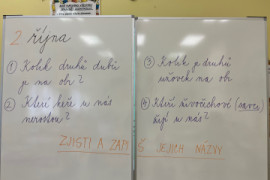 2 října
① Kolik druhů dubů
je na obr?
② Které keře u nás
nerostou?
③ Kolik je druhů
na ob
④ Kteří živočichové
žijí u nás?
ZJISTI A ZAPIŠ JEJICH NÁZVY